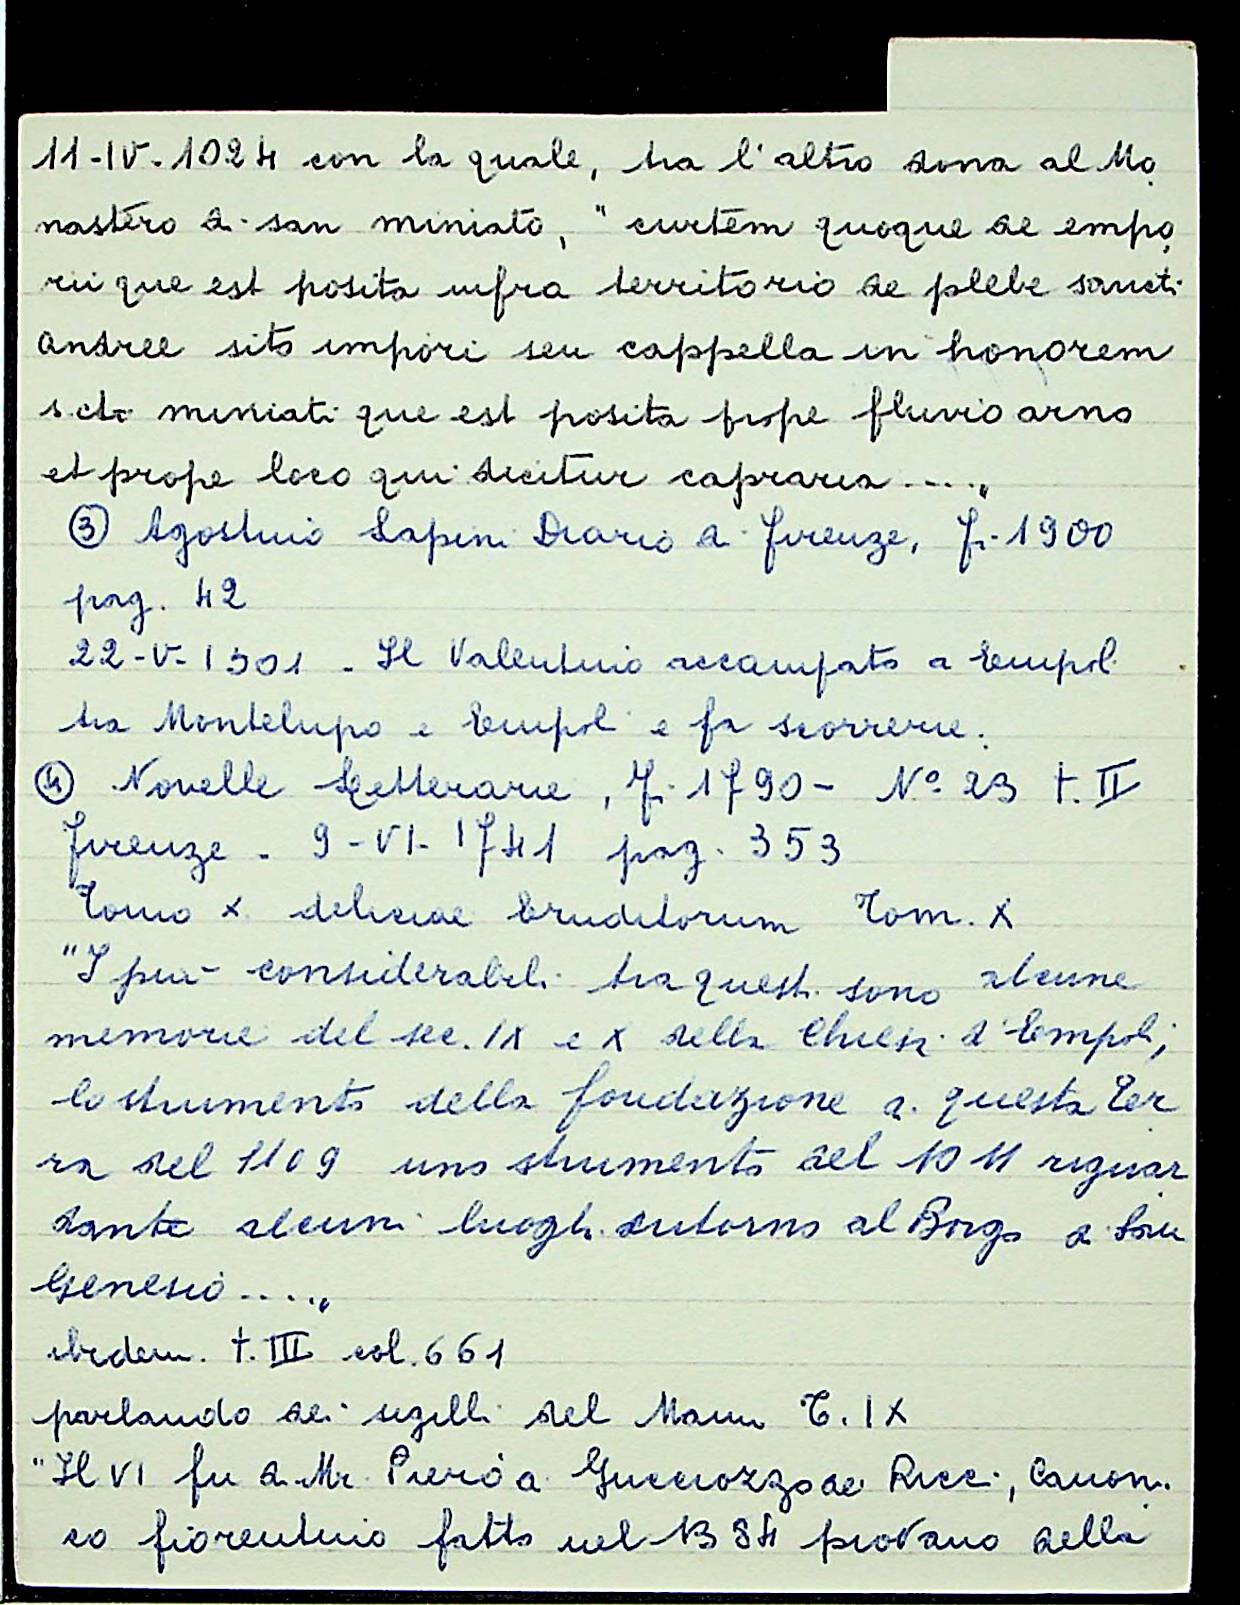 11-IV-1024 con la quale, tra l'altro dona al Mo
nastero di san miniato, "curtem quoque de empo
rii que est posita infra territorio de plebe sancti
andree sito impori seu cappella in honorem
s.cti miniati que est posita prope fluvio arno
et prope loco qui dicitur capraria ....„
③ Agostino Lapini Diario di Firenze, Fi. 1900
pag. 42
22-V-1501 - Il Valentino accampato a Empoli
tra Montelupo e Empoli e fa scorrerie.
④ Novelle Letterarie, Fi. 1790 - N° 23 t. II
Firenze - 9-VI-1741 pag. 353
Tomo X deliciae Eruditorum Tom. X
"I più considerabili tra questi sono alcune
memorie del sec. IX e X della Chiesa d'Empoli;
lo strumento della fondazione di questa Ter
ra del 1109 uno strumento del 1011 riguar
dante alcuni luoghi dintorno al Borgo di San
Genesio ....„
ibidem. t. III col. 661
parlando dei sigilli del Manni T. IX
"Il VI fu di Mr. Piero di Gucciozzo de Ricci, Canoni
co fiorentino fatto nel 1384 piovano della